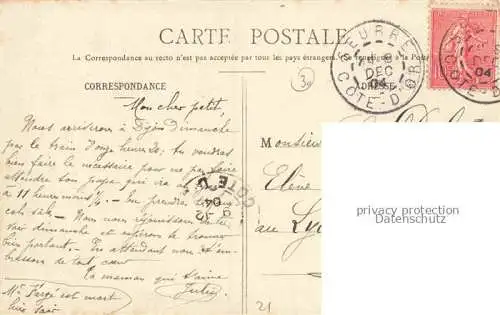 CARTE POSTALE
La Correspondance au recto n'est pas acceptée par tous les pays étrangers. (Se renseigner à la Poste)
CORRESPONDANCE
ADRESSE
SEURRE
8 DEC 04
COTE-D'OR
04
3
Mon cher petit,
Nous arriverons à Dijon Dimanche
par le train d'onze heures 20; tu voudras
bien faire le nécessaire pour ne pas faire
attendre ton papa qui ira
à 11 heures moins ¼. En prendre
Nous nous réjouissons de te
voir dimanche et espérons te trouver
bien portant. En attendant nous t'em-
brassons de tout cœur
Ta maman qui t'aime
Mr Fargé est mort
hier soir
Monsieur
Elève
au Lyc
COTE-D
9-12
04
21
privacy protection
Datenschutz